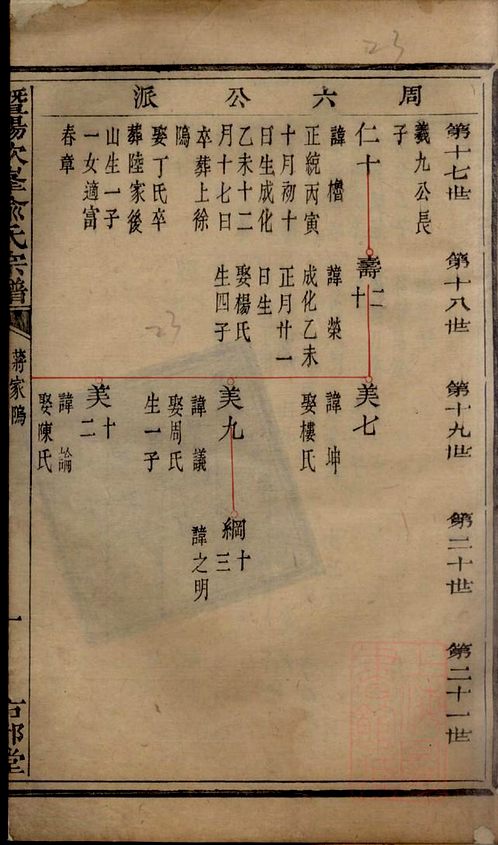 周六公派
第十七世
第十八世
第十九世
第二十世
第二十一世
義九公長
子
仁十
諱橹
正統丙寅
十月初十
日生成化
乙未十二
月十七日
卒葬上徐
隝
娶丁氏卒
葬陸家後
山生一子
一女適富
春章
壽二十
諱榮
成化乙未
正月廿一
日生
娶楊氏
生四子
美七
諱坤
娶樓氏
美九
諱議
娶周氏
生一子
綱十三
諱之明
美十二
諱
娶陳氏
氏宗譜
蔣家隝
一
堂
23
23